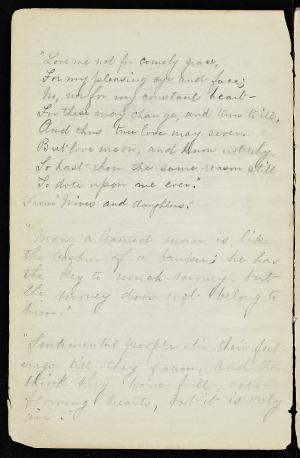 "Love me not for comely grace,
For my pleasing eye and face;
No, nor for my constant heart—
For these may change, and turn to ill,
And thus true love may sever.
But love me on, and know not why,
So hast thou the same reason still
To dote upon me ever."
From "Wives and daughters."
"Many a learned man is like
the cashier of a banker; he has
the key to much money, but
the money does not belong to
him."
"Sentimental people stir their feel-
ings till they foam, and then
think they have full, over-
flowing hearts, but it is only
air."